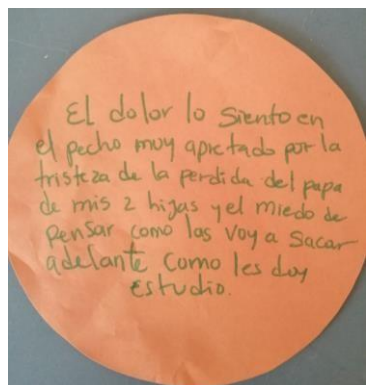 El dolor lo siento en
el pecho muy apretado por la
tristeza de la perdida del papa
de mis 2 hijas y el miedo de
pensar como las voy a sacar
adelante como les doy
estudio.